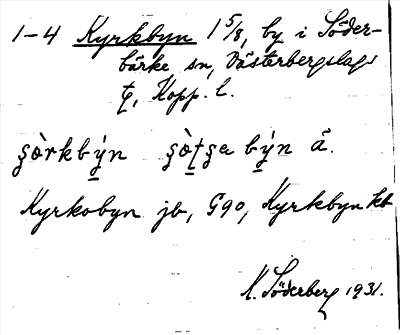 1-4 Kyrkbyn 1 5/8, by i Söder-
bärke sn, Västerbergslags
tg, Kopp. l.
şòrkbýn şòţşa býn ä.
Kyrkobyn jb, G90, Kyrkbyn kb
K. Söderberg 1931.